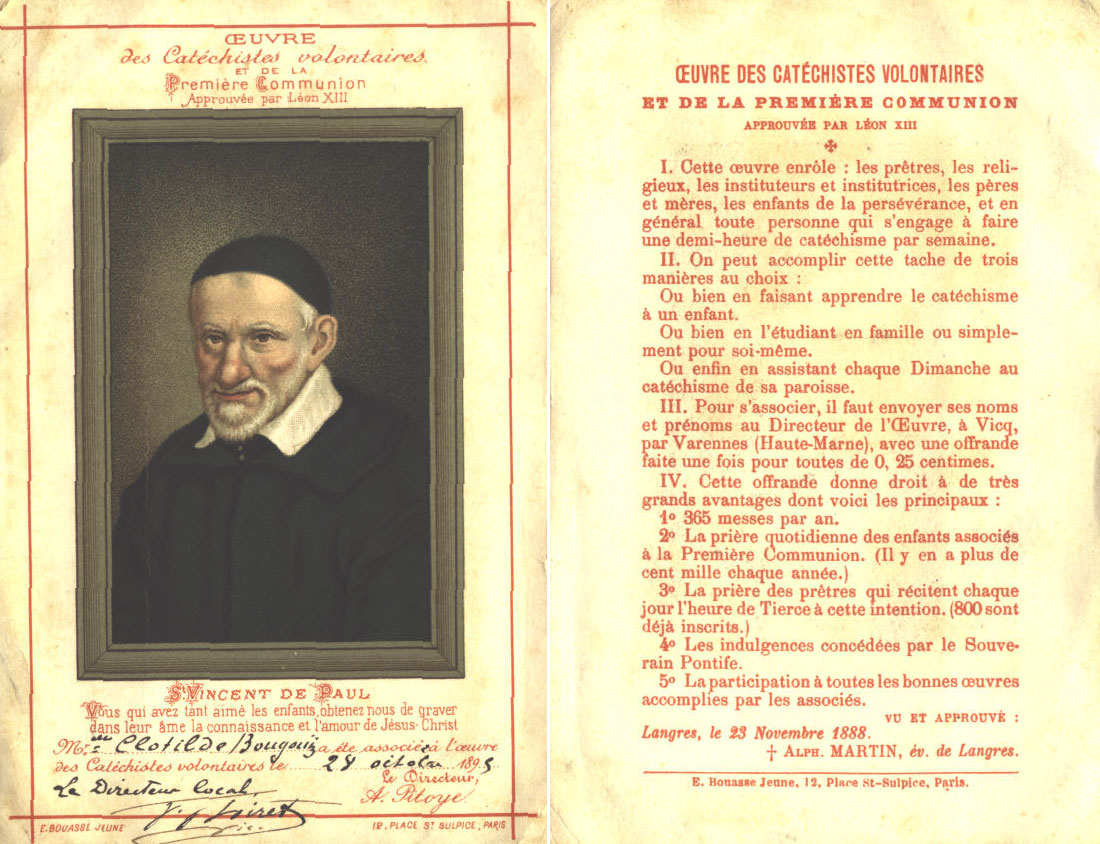 ŒUVRE
des Catéchistes volontaires.
ET DE LA
Première Communion
Approuvée par Léon XIII
ST VINCENT DE PAUL
Vous qui avez tant aimé les enfants, obtenez nous de graver
dans leur âme la connaissance et l'amour de Jésus-Christ
Mlle Clotilde a été associée à l'œuvre
des Catéchistes volontaires le 28 octobre 1895
Le Directeur,
Le Directeur local,
A. Pitoye.
E. BOUASSE JEUNE
12, PLACE ST SULPICE, PARIS
ŒUVRE DES CATÉCHISTES VOLONTAIRES
ET DE LA PREMIÈRE COMMUNION
APPROUVÉE PAR LÉON XIII
I. Cette œuvre enrôle : les prêtres, les reli-
gieux, les instituteurs et institutrices, les pères
et mères, les enfants de la persévérance, et en
général toute personne qui s'engage à faire
une demi-heure de catéchisme par semaine.
II. On peut accomplir cette tache de trois
manières au choix :
Ou bien en faisant apprendre le catéchisme
à un enfant.
Ou bien en l'étudiant en famille ou simple-
ment pour soi-même.
Ou enfin en assistant chaque Dimanche au
catéchisme de sa paroisse.
III. Pour s'associer, il faut envoyer ses noms
et prénoms au Directeur de l'Œuvre, à Vicq,
par Varennes (Haute-Marne), avec une offrande
faite une fois pour toutes de 0, 25 centimes.
IV. Cette offrande donne droit à de très
grands avantages dont voici les principaux :
1º 365 messes par an.
2º La prière quotidienne des enfants associés
à la Première Communion. (Il y en a plus de
cent mille chaque année.)
3º La prière des prêtres qui récitent chaque
jour l'heure de Tierce à cette intention. (800 sont
déjà inscrits.)
4º Les indulgences concédées par le Souve-
rain Pontife.
5º La participation à toutes les bonnes œuvres
accomplies par les associés.
VU ET APPROUVÉ :
Langres, le 23 Novembre 1888.
† ALPH. MARTIN, év. de Langres.
E. Bouasse Jeune, 12, Place St-Sulpice, Paris.